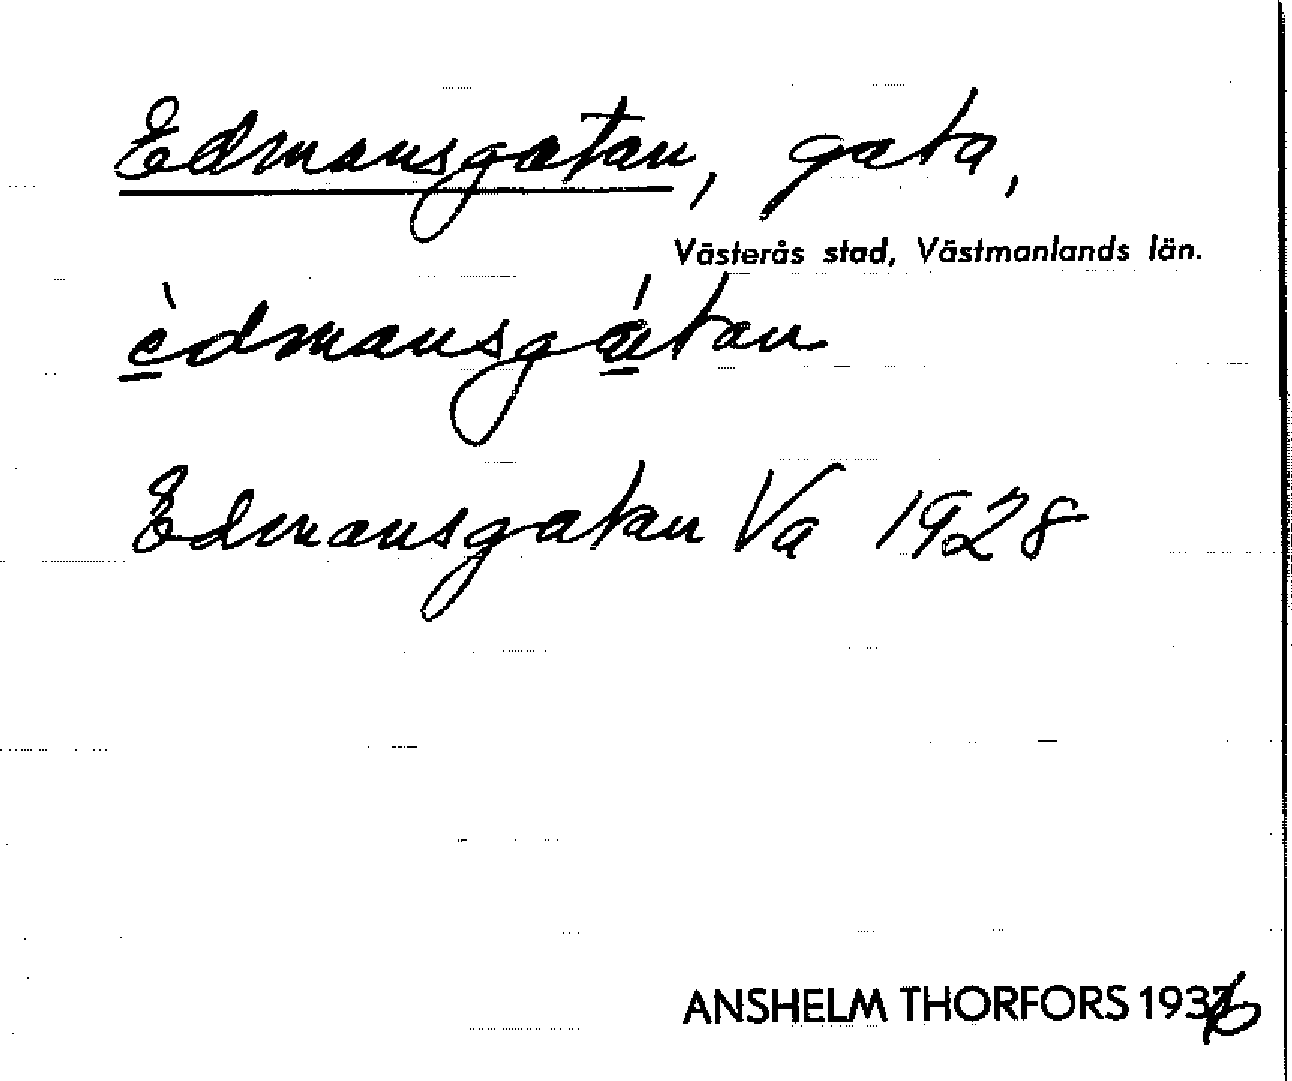 Edmansgatan, gata,
Västerås stad, Västmanlands län.
èdmansgátan
Edmansgatan Va 1928
ANSHELM THORFORS 1936